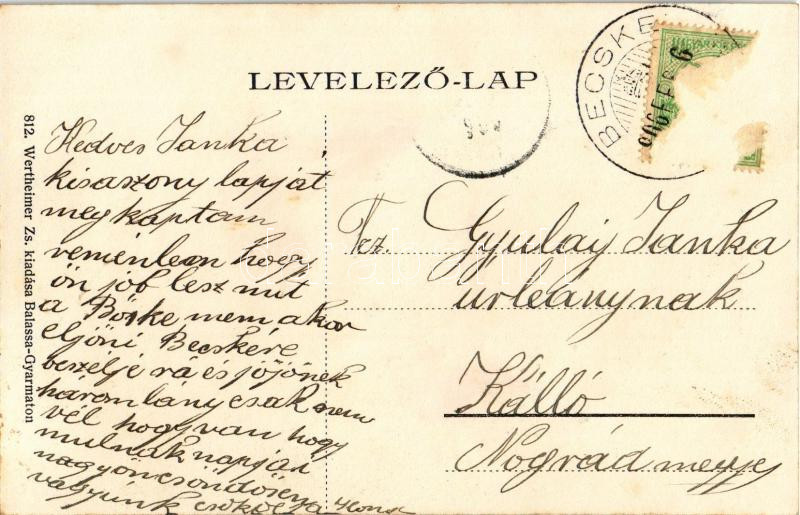 LEVELEZŐ-LAP
BECSKE
906 FEB 6
812. Wertheimer Zs. kiadása Balassa-Gyarmaton
Hedves Janka
kisaszony lapját
meg kaptam
reménlem hogy
ön job lesz mit
a Böske nem akar
eljöni Becskére
beszélje rá és jöjönek
három lány csak nem
vél hogy van hogy
mulnak napján
nagyon csöndösen
vagyunk csókol
Gyulay Janka
urleánynak
Kálló
Nográd megye